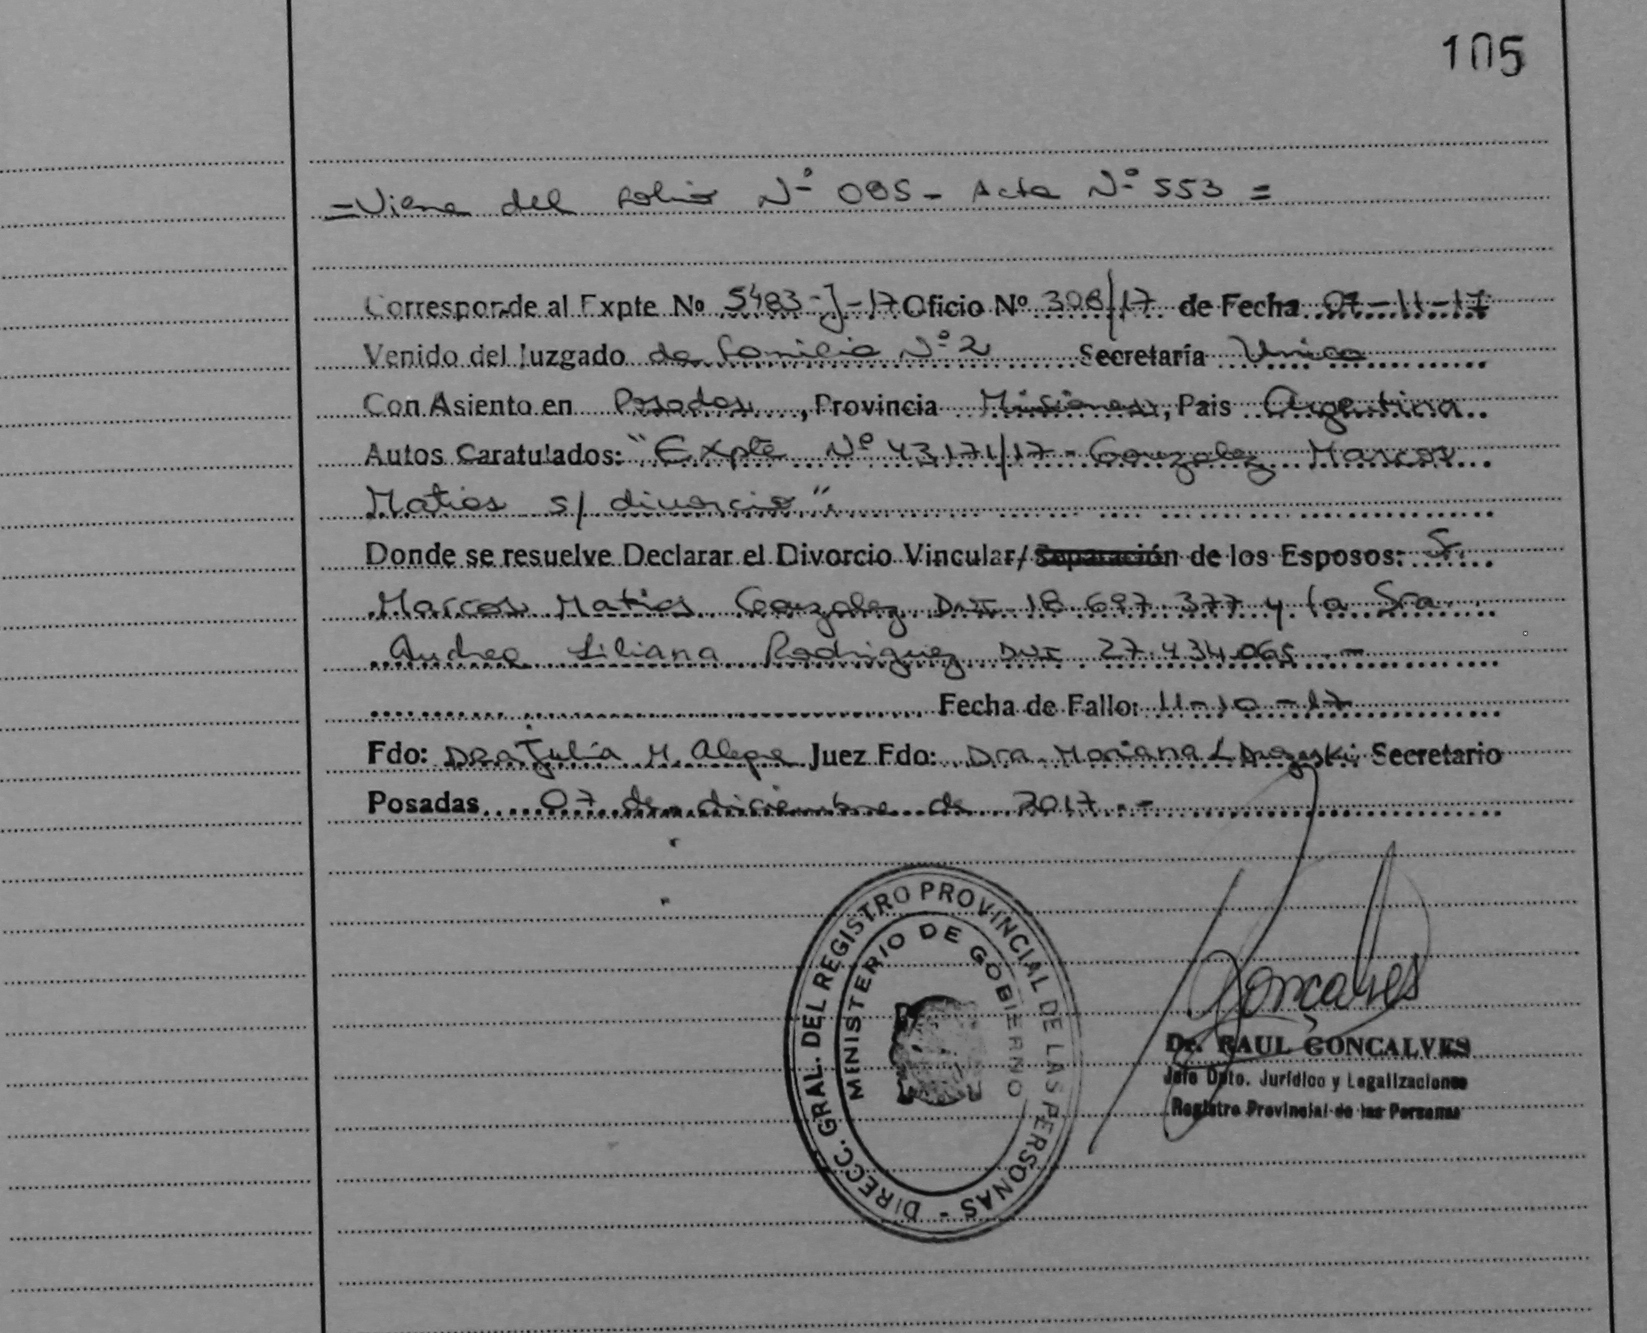 105
=Viene del folio Nº 085- Acta Nº 553 =
Corresponde al Expte Nº 5483-J-17 Oficio Nº 308/17 de Fecha 07-11-17
Venido del Juzgado de familia Nº 2 Secretaría Unica
Con Asiento en Posadas, Provincia Misiones, Pais Argentina
Autos Caratulados: "Expte Nº 43171/17- Gonzalez Marcos
Matias s/ divorcio"
Donde se resuelve Declarar el Divorcio Vincular/ Separación de los Esposos: Sr.
Marcos Matias Gonzalez DNI 18.697.377 y la Sra
Andrea Liliana Rodriguez DNI 27.434.065.-
Fecha de Fallo: 11-10-17
Fdo: Dra Julia M. Alegre Juez Fdo: Dra. Mariana Secretario
Posadas 07 de diciembre de 2017.-
DIRECC. GRAL. DEL REGISTRO PROVINCIAL DE LAS PERSONAS -
MINISTERIO DE GOBIERNO
Gonçalves
Dr. RAUL GONÇALVES
Jefe Dpto. Jurídico y Legalizaciones
Registro Provincial de las Personas